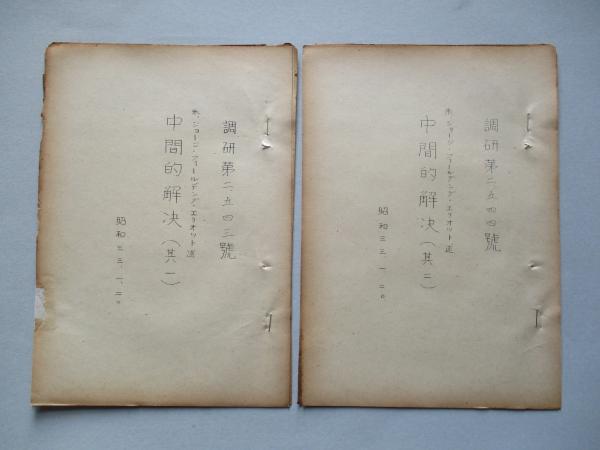 調研第二、五四三號
米、ジョージ・フィールディング・エリオット
中間的解決（其一）
昭和三三、一、二〇
調研第二、五四四號
米、ジョージ・フィールディング・エリオット
中間的解決（其二）
昭和三三、一、二〇